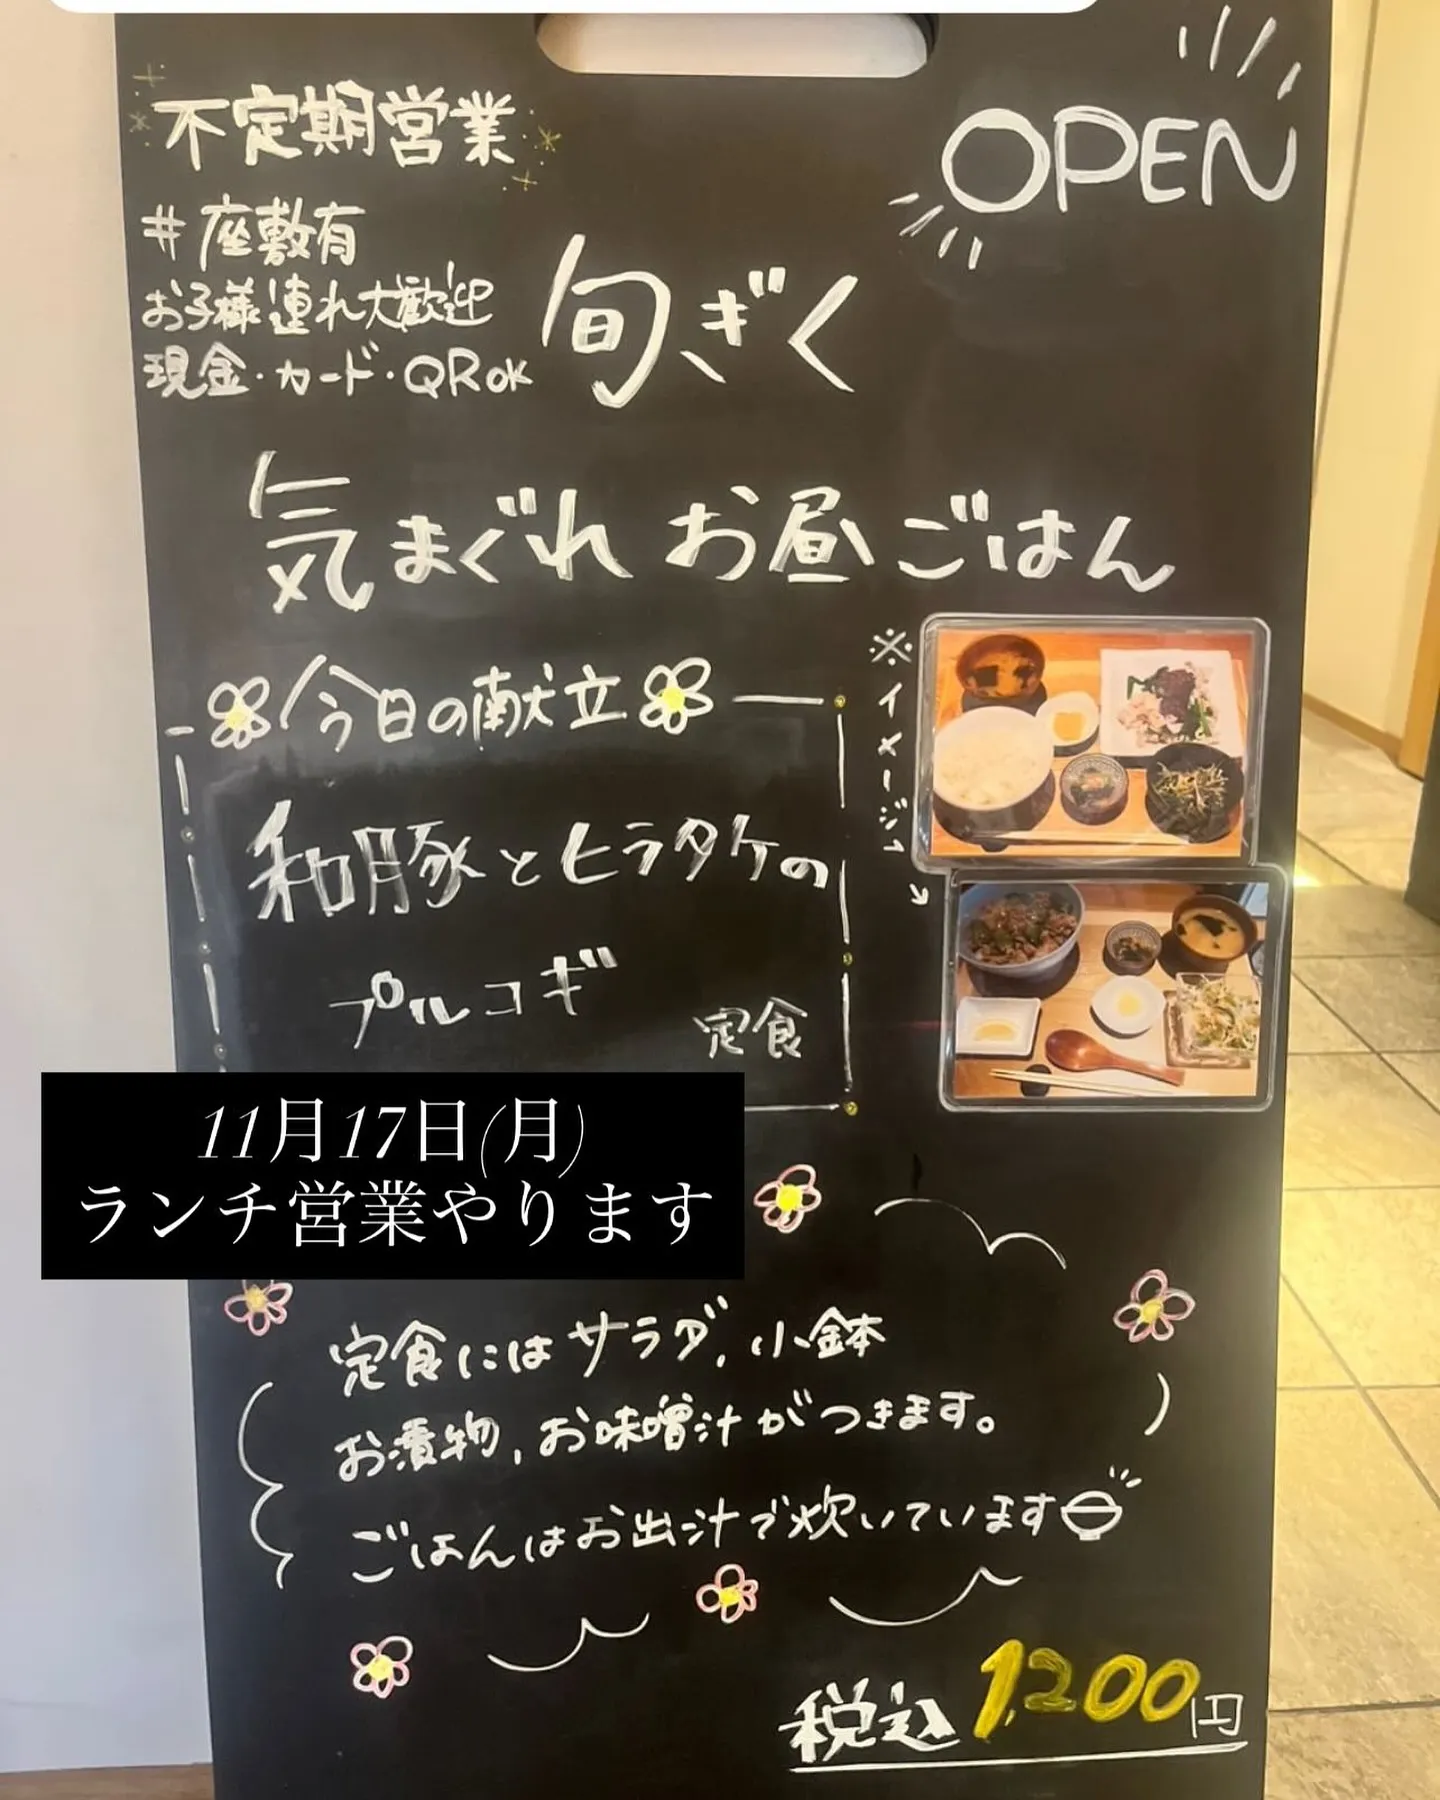 不定期営業
OPEN
#座敷有
お子様連れ大歓迎
現金・カード・QR OK
旬ぎく
気まぐれお昼ごはん
今日の献立
※イメージ
和豚とヒラタケの
プルコギ
定食
11月17日(月)
ランチ営業やります
定食にはサラダ,小鉢
お漬物,お味噌汁がつきます。
ごはんはお出汁で炊いています
税込1,200円